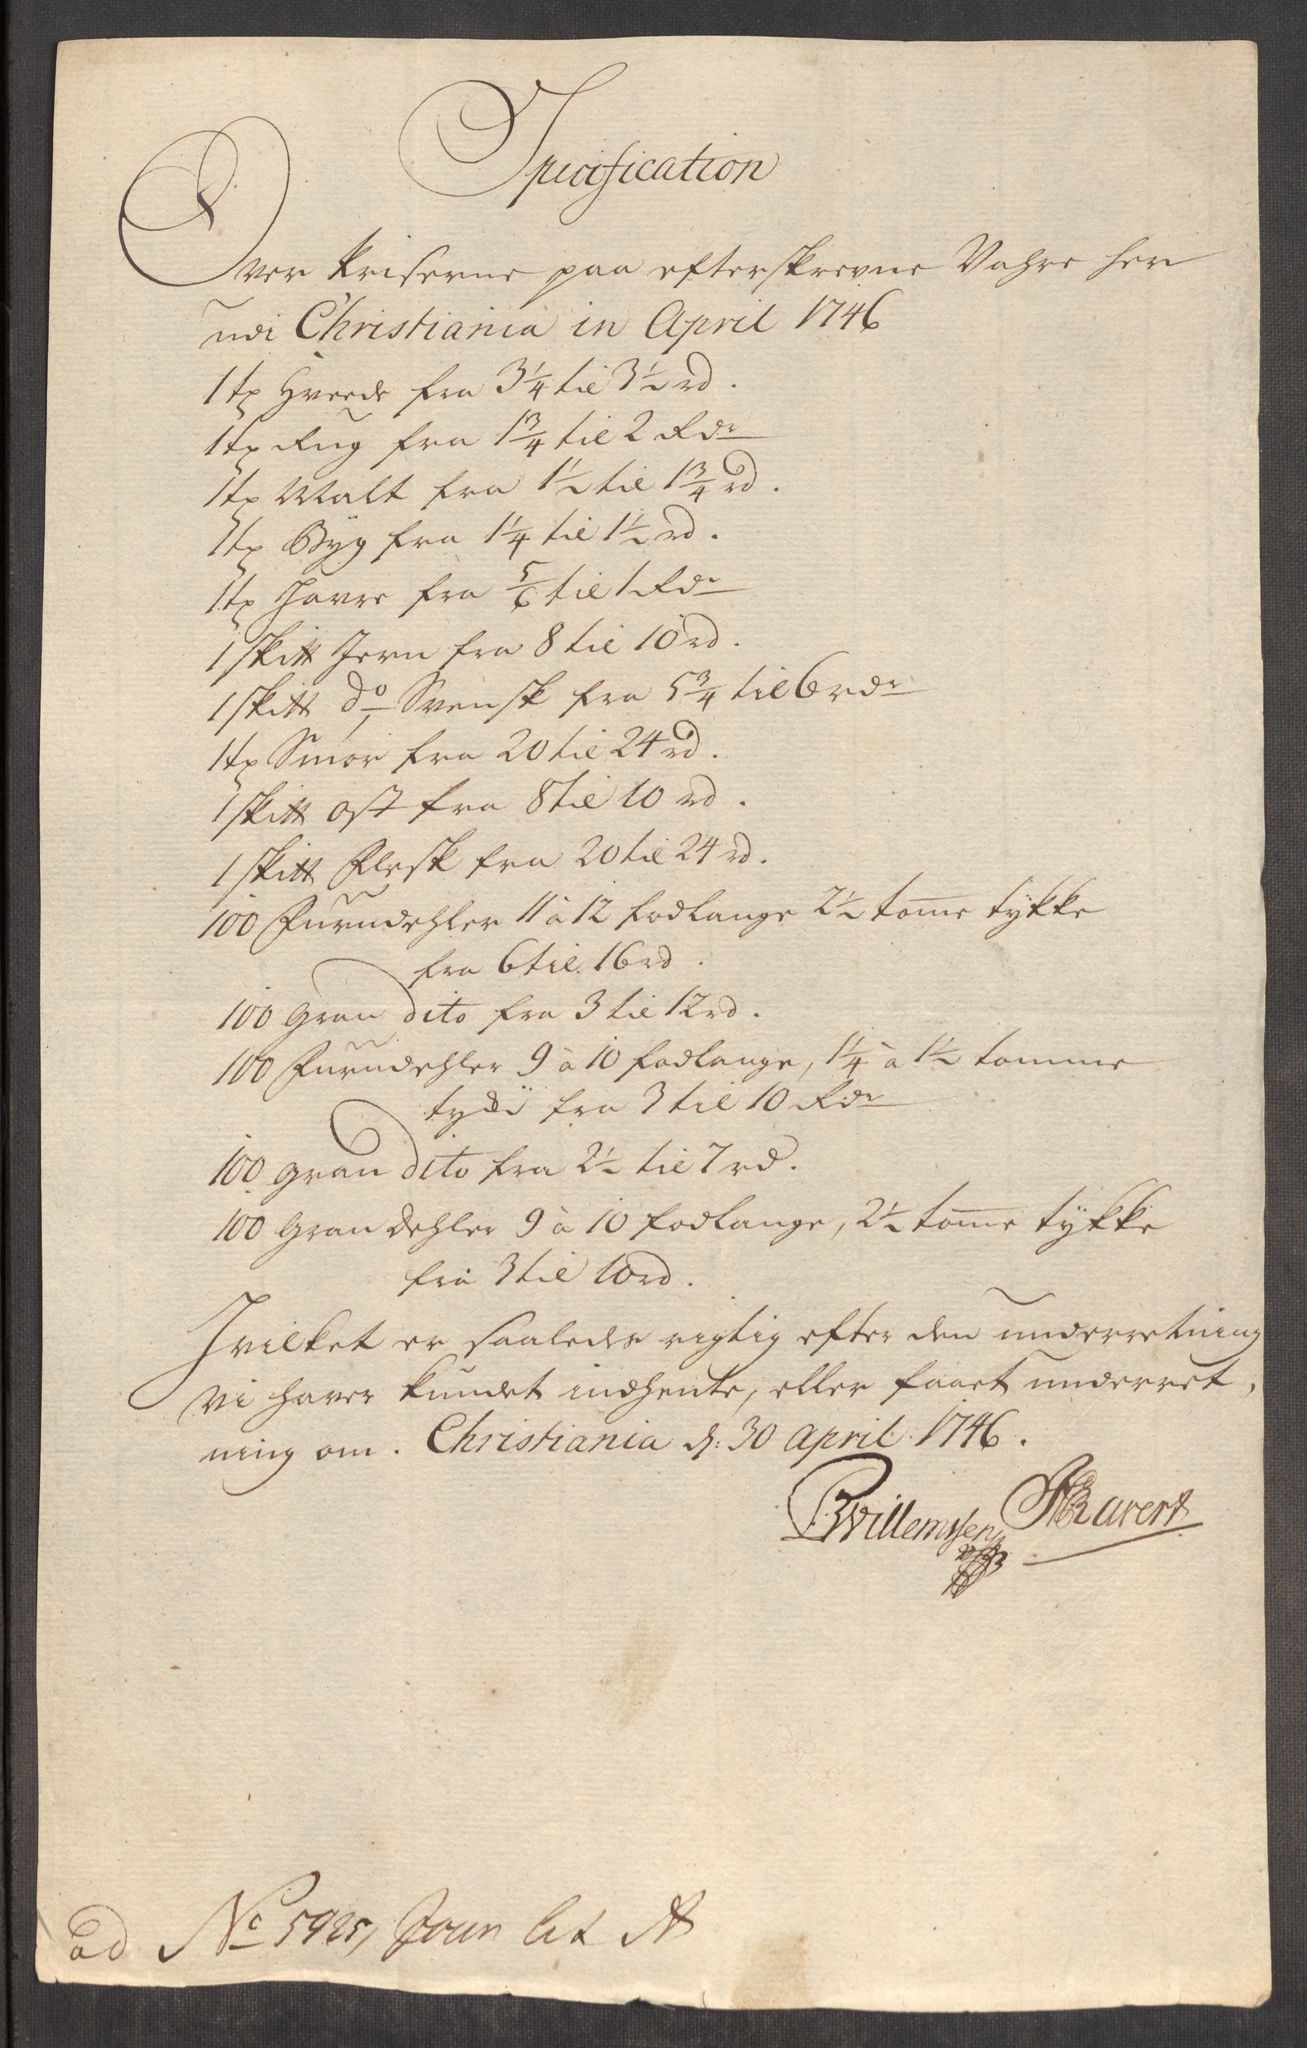 Specification
Over Priserne paa efterskrevne Vahre her
udi Christiania in April 1746
1 tø Hveede fra 3¼ til 3½ rd.
1 tø Rug fra 1¾ til 2 Rdr
1 tø Malt fra 1½ til 1¾ rd.
1 tø Byg fra 1¼ til 1½ rd.
1 tø Havre fra 5/6 til 1 Rdr
1 skitt Jern fra 8 til 10 rd.
1 skitt do Svensk fra 5¾ til 6 rdr
1 tø Smør fra 20 til 24 rd.
1 skitt Ost fra 8 til 10 rd.
1 skitt Flesk fra 20 til 24 rd.
100 Furudehler 11 à 12 fodlange 2½ tome tykke
fra 6 til 16 rd.
100 Gran dito fra 3 til 12 rd.
100 Furudehler 9 à 10 fodlange, 1¼ à 1½ tomme
fra 3 til 10 Rdr
100 gran dito fra 2½ til 7 rd.
100 Gran dehler 9 à 10 fodlange, 2½ tome tykke
fra 3 til 10 rd.
Hvilket er saaledes rigtig efter den underretning
vi haver kundet indhente, eller faaet underret,
ning om. Christiania d: 30 April 1746.
Willemsen Ravert
ad No 5925, Journ lit A